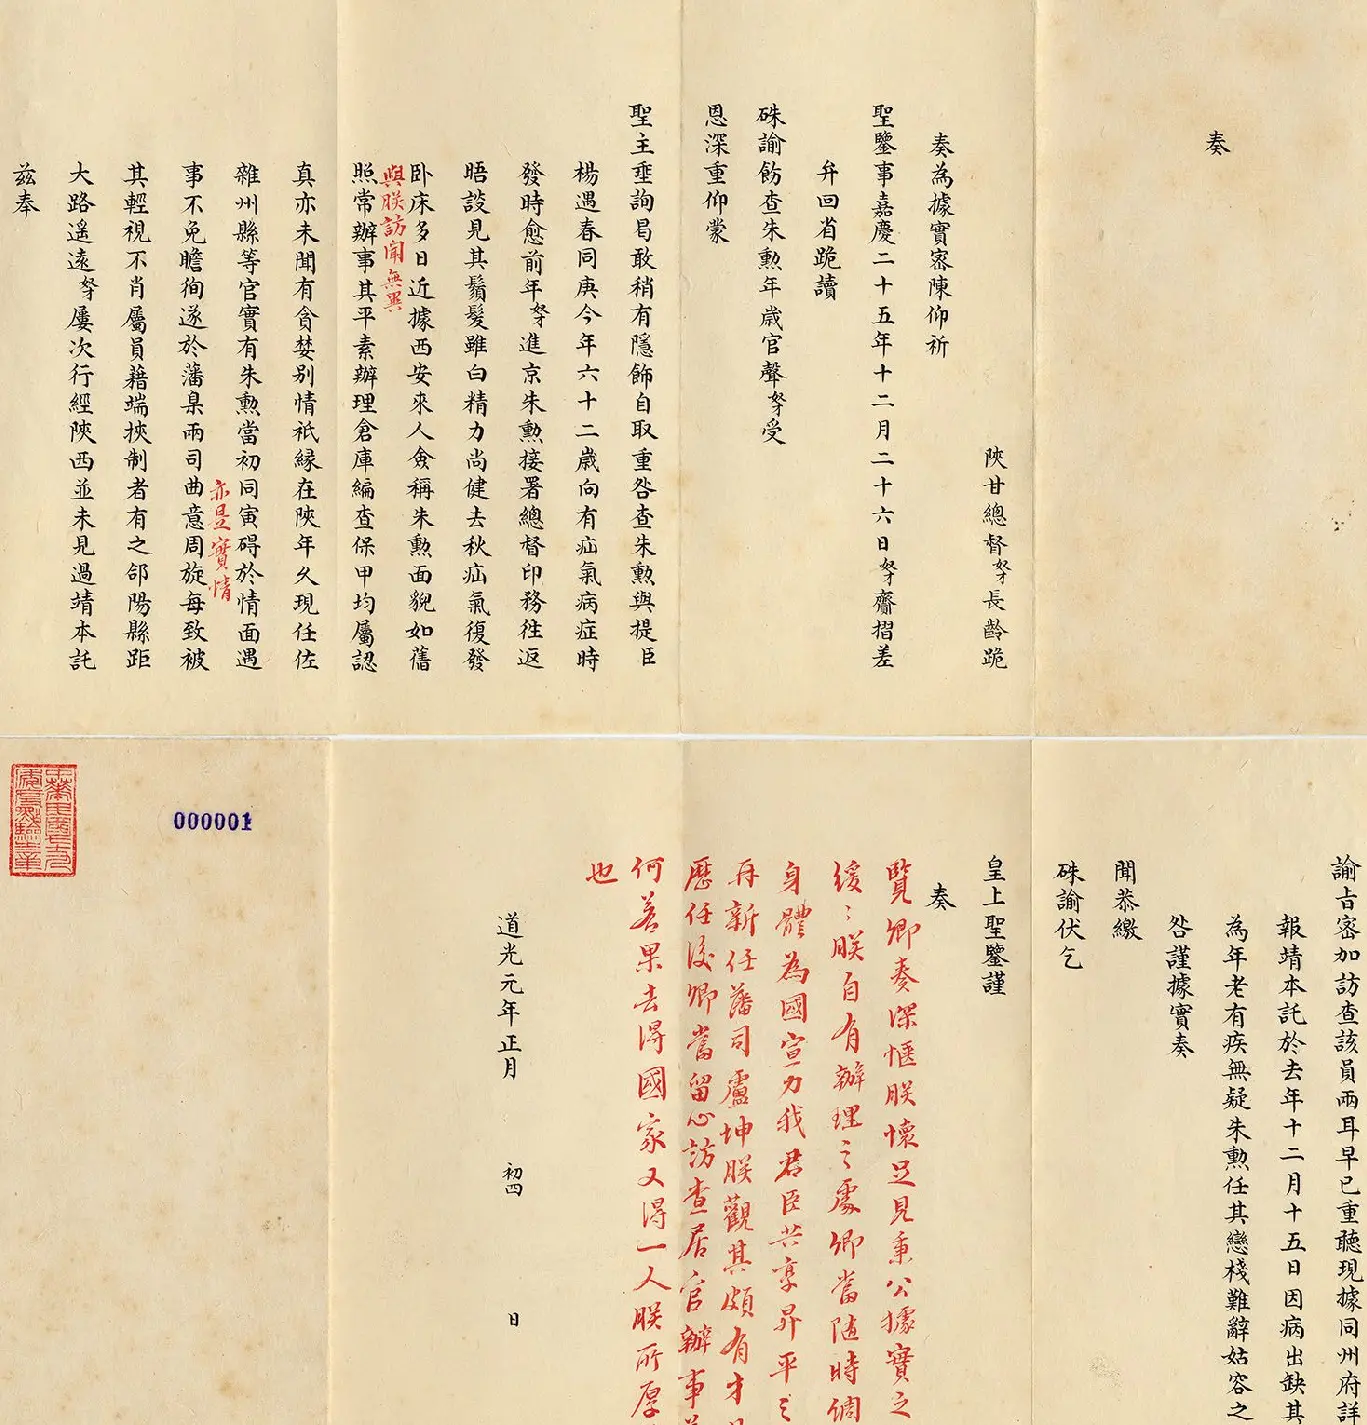 奏
陝甘總督奴才長齡跪
奏為據實密陳仰祈
聖鑒事嘉慶二十五年十二月二十六日奴才齎摺差
弁回省跪讀
硃諭飭查朱勳年歲官聲奴才受
恩深重仰蒙
聖主垂詢曷敢稍有隱飾自取重咎查朱勳與提臣
楊遇春同庚今年六十二歲向有疝氣病症時
發時愈前年奴才進京朱勳接署總督印務往返
晤談見其鬚髮雖白精力尚健去秋疝氣復發
卧床多日近據西安來人僉稱朱勳面貌如舊
與朕訪聞無異
照常辦事其平素辦理倉庫編查保甲均屬認
真亦未聞有貪婪别情祇緣在陝年久現任佐
雜州縣等官實有朱勳當初同寅碍於情面遇
亦是實情
事不免瞻徇遂於藩臬兩司曲意周旋每致被
其輕視不肖屬員藉端挾制者有之郃陽縣距
大路遥遠奴才屢次行經陝西並未見過靖本託
兹奉
諭旨密加訪查該員兩耳早已重聽現據同州府詳
報靖本託於去年十二月十五日因病出缺其
為年老有疾無疑朱勳任其戀棧難辭姑容之
咎謹據實奏
聞恭繳
硃諭伏乞
皇上聖鑒謹
奏
覽卿奏深愜朕懷足見秉公據實之
朕自有辦理之處卿當隨時調
身體為國宣力我君臣共享昇平之
再新任藩司盧坤朕觀其頗有才
歷任後卿當留心訪查居官辦事
何若果去得國家又得一人朕所厚
也
道光元年正月
初四
日
000001